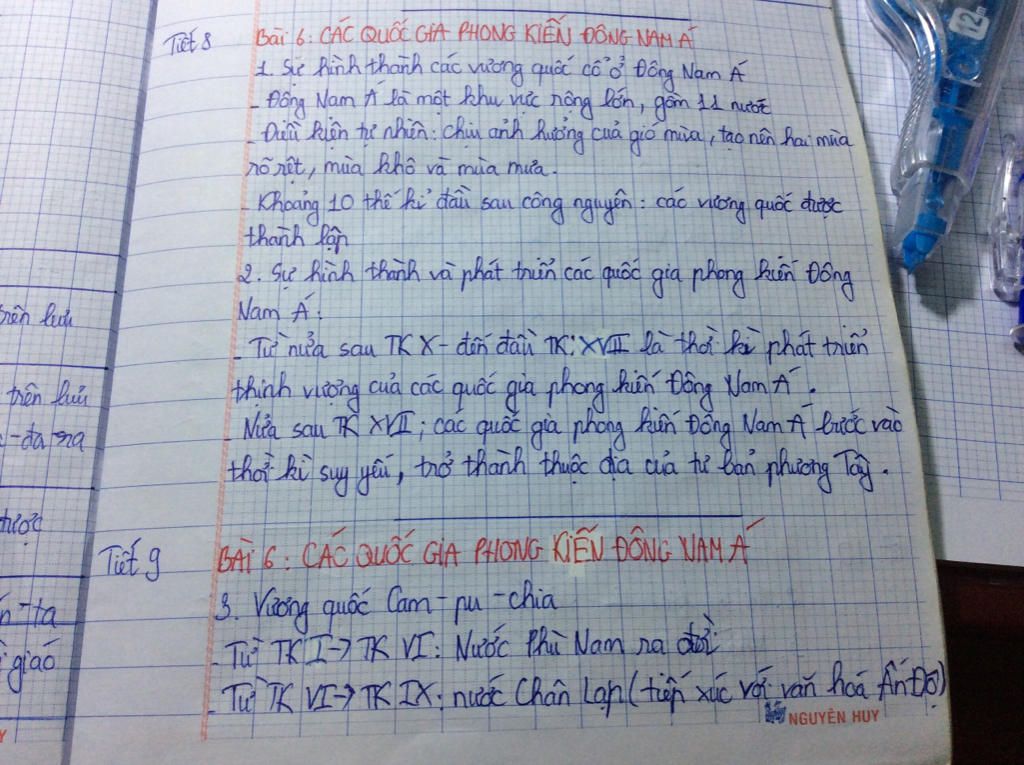 Tiết 8
Bài 6: CÁC QUỐC GIA PHONG KIẾN ĐÔNG NAM Á
1. Sự hình thành các vương quốc cổ ở Đông Nam Á
- Đông Nam Á là một khu vực rộng lớn, gồm 11 nước
- Điều kiện tự nhiên: chịu ảnh hưởng của gió mùa, tạo nên hai mùa
rõ rệt, mùa khô và mùa mưa.
- Khoảng 10 thế kỉ đầu sau công nguyên: các vương quốc được
thành lập
2. Sự hình thành và phát triển các quốc gia phong kiến Đông
Nam Á:
- Từ nửa sau TK X - đến đầu TK: XVIII là thời kì phát triển
thịnh vượng của các quốc gia phong kiến Đông Nam Á.
- Nửa sau TK XVII; các quốc gia phong kiến Đông Nam Á bước vào
thời kì suy yếu, trở thành thuộc địa của tư bản phương Tây.
Tiết 9
BÀI 6: CÁC QUỐC GIA PHONG KIẾN ĐÔNG NAM Á
3. Vương quốc Cam-pu-chia
- Từ TK I → TK VI: Nước Phù Nam ra đời
- Từ TK VI → TK IX: nước Chân Lạp (tiếp xúc với văn hoá Ấn Độ)
NGUYÊN HUY
trên lưu
trên lưu
-đa ra
được
-ta
giáo
12